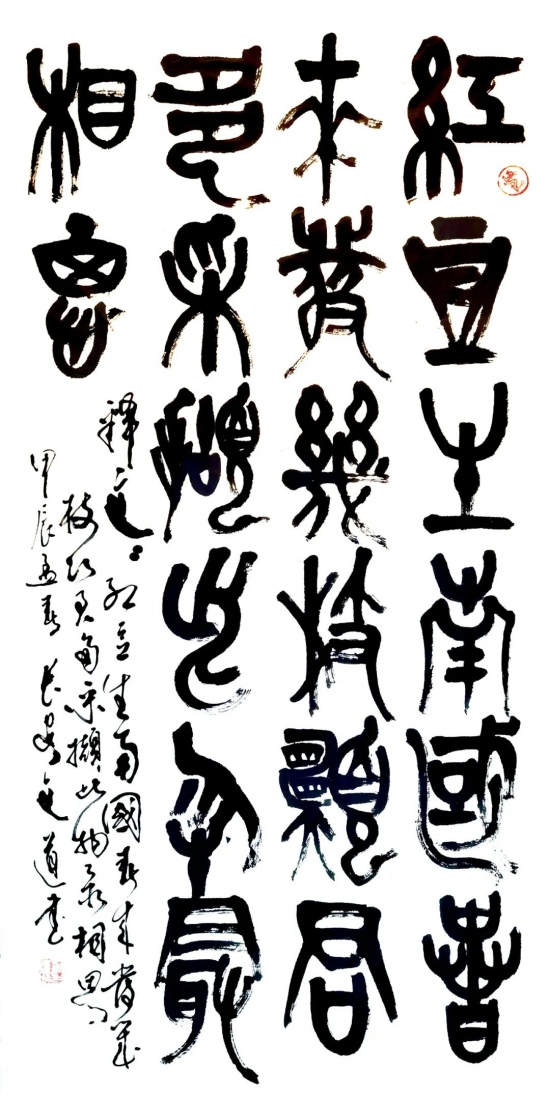 紅豆生南國春
來發幾枝願君
多采擷此物最
相思
釋文：紅豆生南國春來發幾
枝願君多采擷此物最相思
甲辰孟春長安文道書